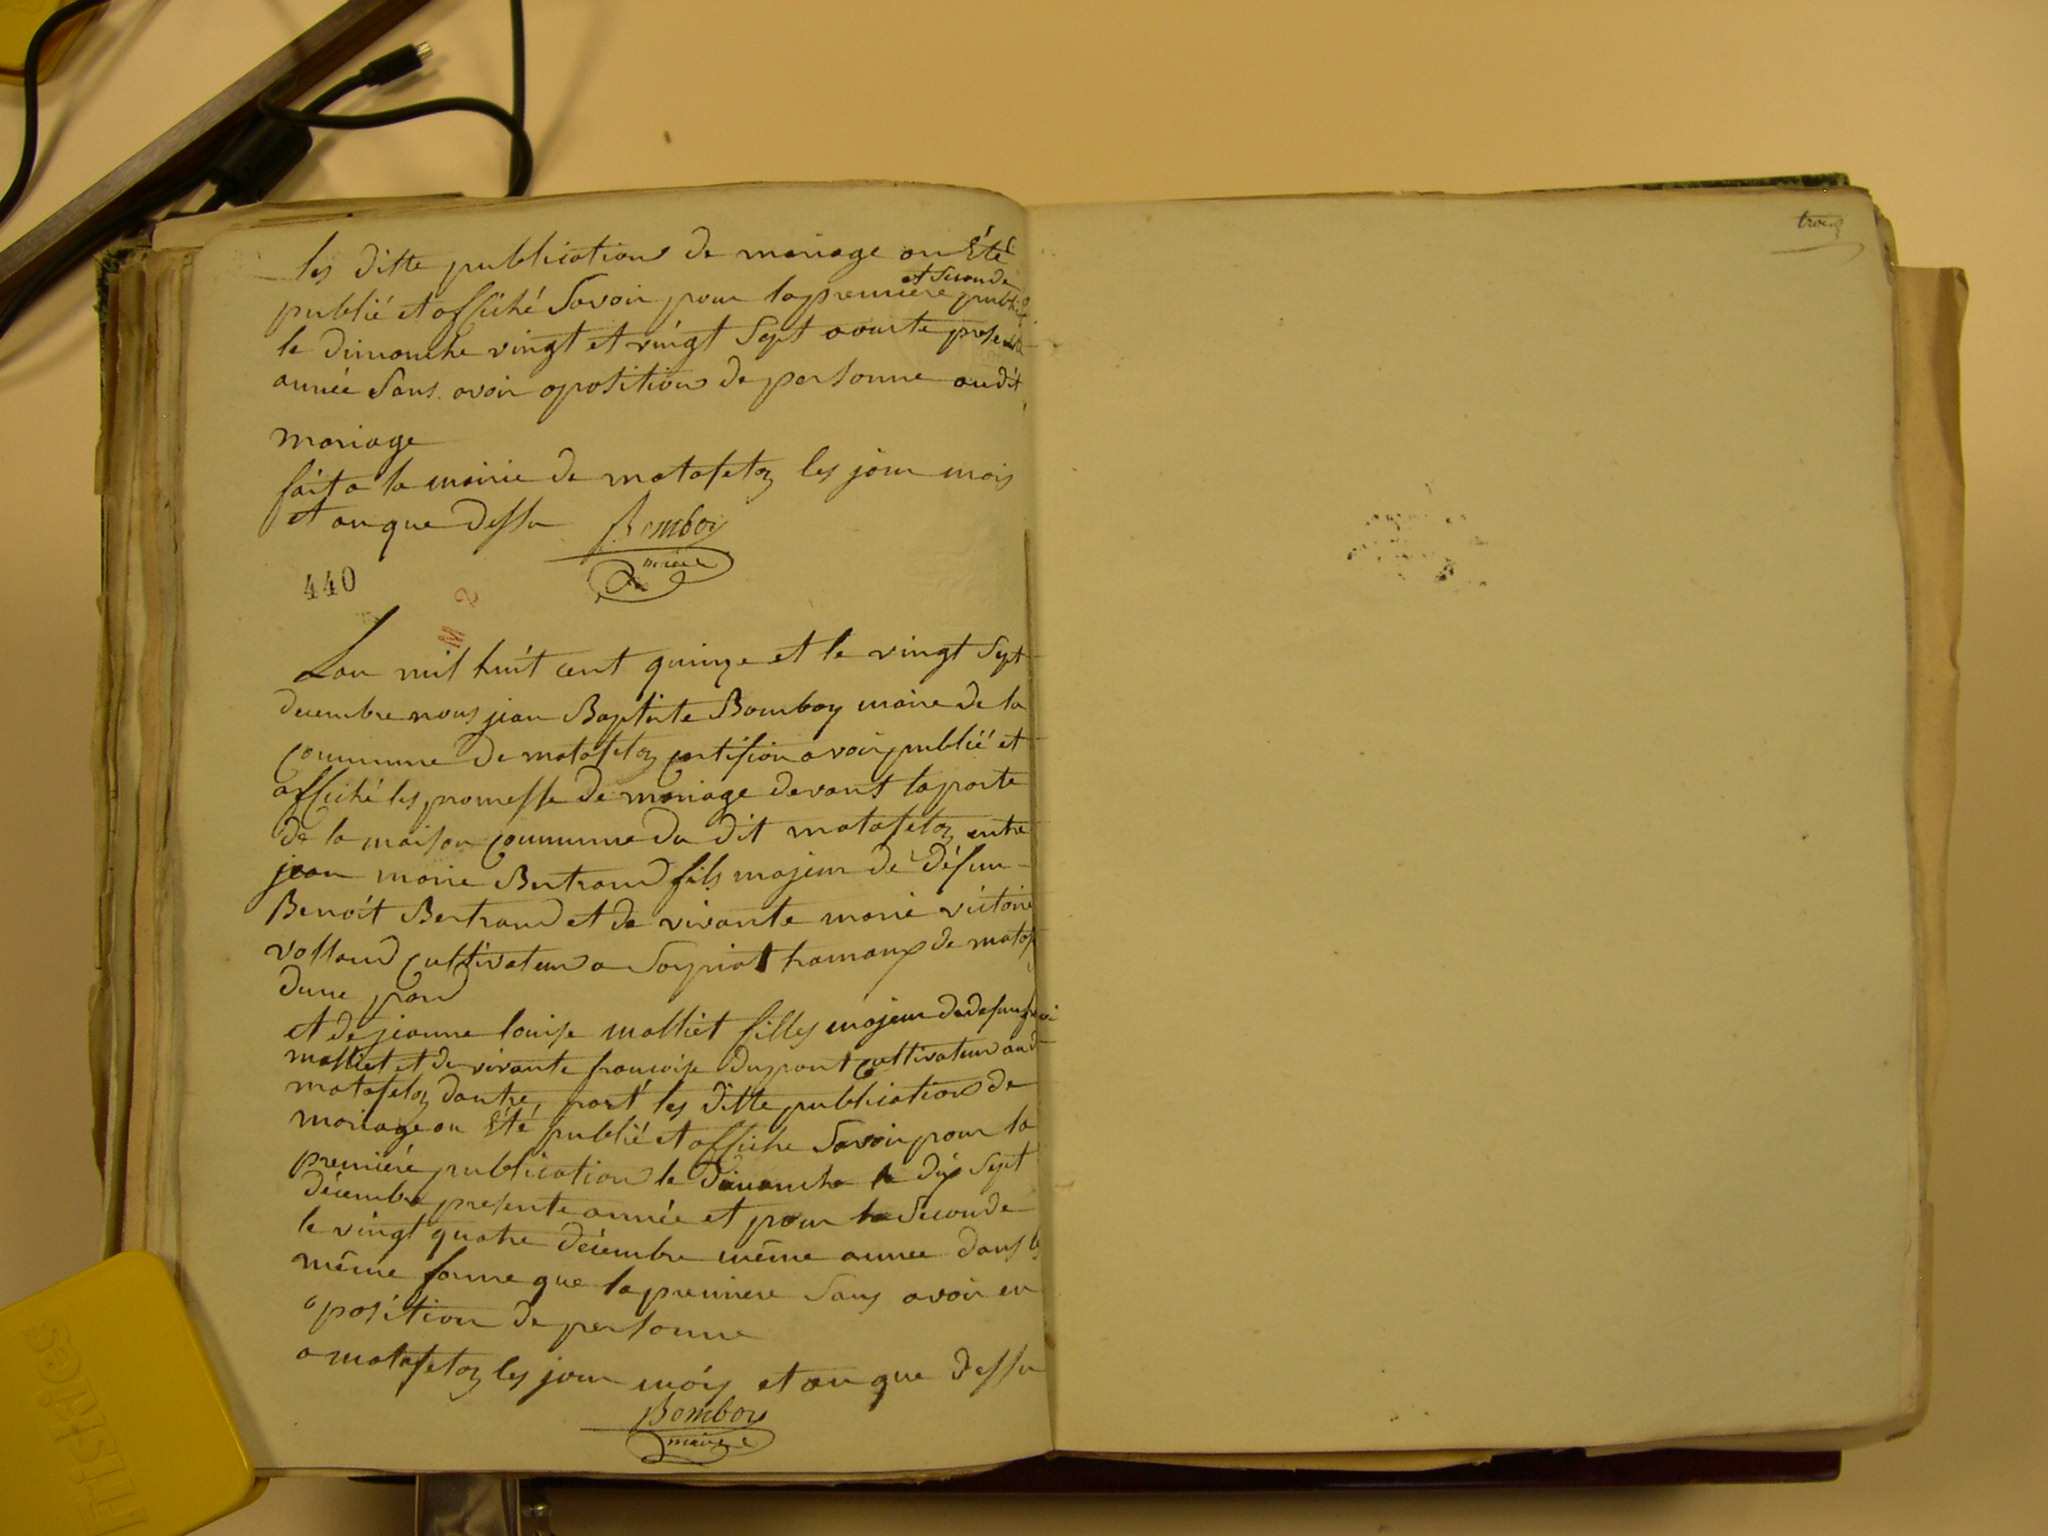 les ditte publication de mariage on Été
et Seconde
publié et affiché Savoir pour la premiere public
le dimanche vingt et vingt Sept aouste presente
année Sans avoir oposition de personne audit
mariage
fait a la mairie de matafelon les jour mois
et an que dessu Bomboy
maire
440
M 2
Lan mil huit cent quinze et le vingt Sept
decembre nous jean Baptiste Bomboy maire de la
commune de matafelon certifion avoir publié et
affiché les promesse de mariage devant la porte
de la maison commune du dit matafelon entre
jean marie Bertrand fils majeur de défun
Benoit Bertrand et de vivante marie victoire
volland cultivateur a Soyriat hamaux de mataf
dune pard
et de jeanne louise malliet filles majeur de defun
malliet et de vivante francoise dupont cultivateur aud
matafelon dautre part les ditte publication de
mariage on Été publié et affiche Savoir pour la
premiére publication le dimanche le dix Sept
décembre presente année et pour la Seconde
le vingt quatre décembre même année dans la
même forme que la premiere Sans avoir eu
oposition de personne
a matafelon les jour mois et an que dessu
Bomboy
maire
trois